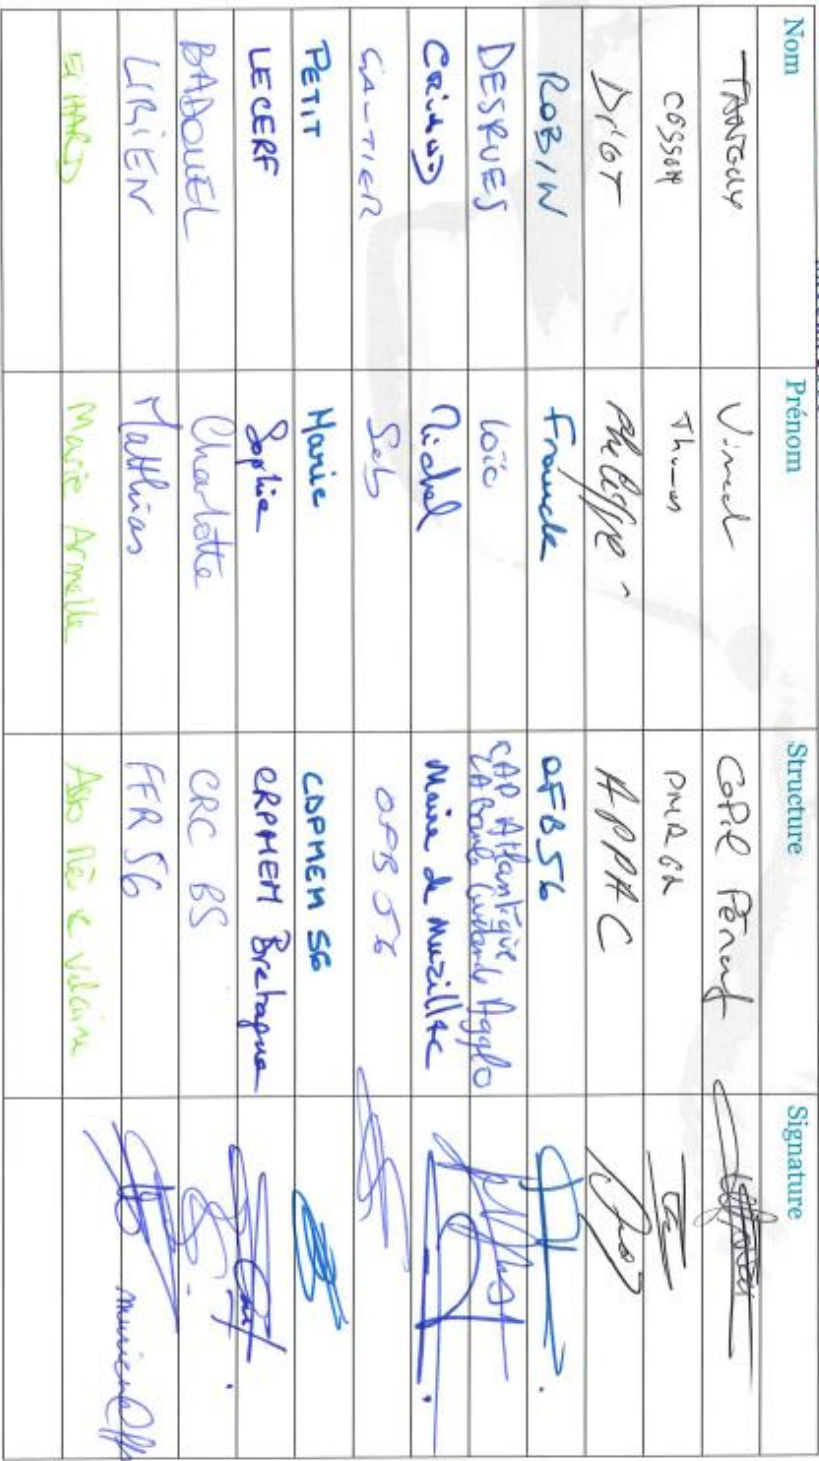 Nom Prénom Structure Signature
TANGUY Vincent Copil Pénerf
COSSON Thomas
DRIOT Philippe APPAC
ROBIN Franck OFB 56
DESRUES Loïc CAP Atlantique
LA Baule Guérande Agglo
Criaud Michel Maire de Muzillac
GAUTIER Seb OFB 56
PETIT Marie CDPMEM 56
LECERF Sophie CRPMEM Bretagne
BADOUEL Charlotte CRC BS
Matthias FFR 56
Marie Armelle Asso